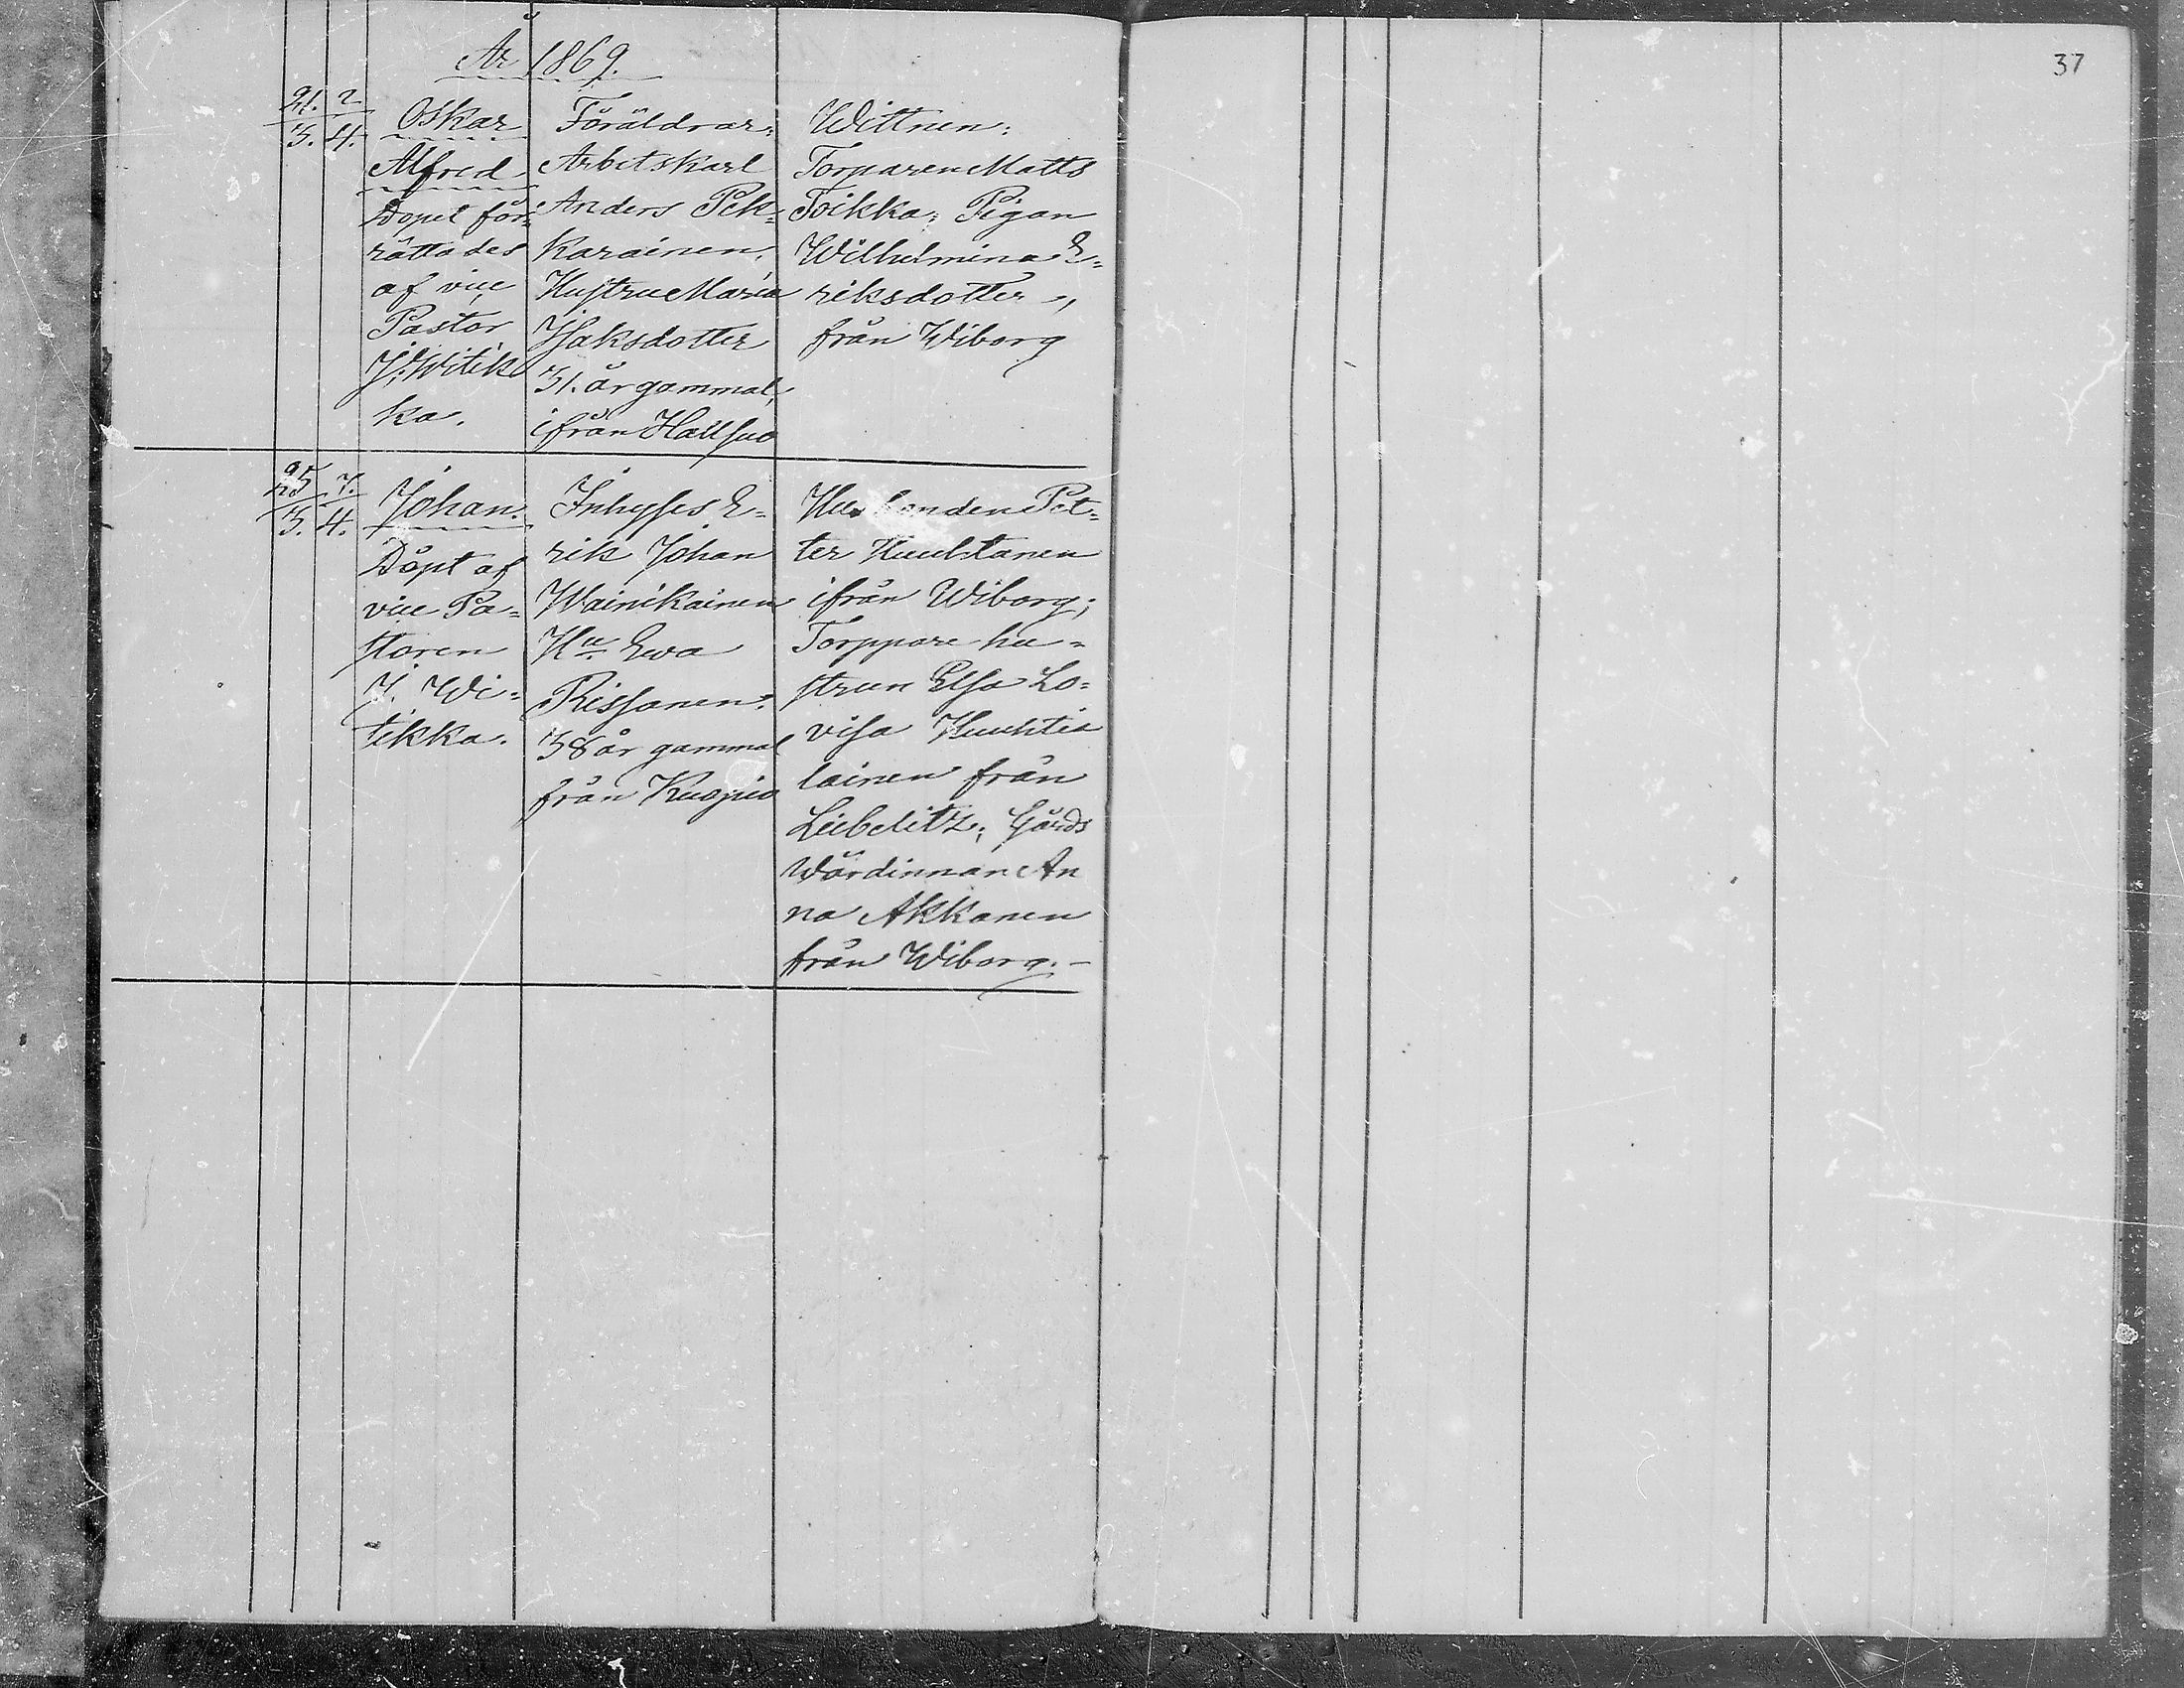 År 1869.
37
21. 2
3. 4.
Oskar
Alfred
Dopet för=
rättades
af vice
Pastor
J. Witik
ka.
Föräldrar:
Arbetskarl
Anders Pek=
karainen,
Hustru Maria
Isaksdotter
31. år gammal,
ifrån
Wittnen:
Torparen Matts
Toikka; Pigan
Wilhelmina E=
riksdotter,,
från Wiborg
25 7.
3. 4.
Johan.
Döpt af
vice Pa=
storen
J. Wi=
tikka.
Inhyses E=
rik Johan
Wainikainen
Hu Ewa
Rissanen.
38 år gammal
från Kuopio
Pet=
ter Huuhtanen
ifrån Wiborg;
Torppare hu=
strun Elsa Lo=
visa Huuhtia
lainen från
Leibelitz; Gårds
Wärdinnan An
na Akkanen
från Wiborg.-